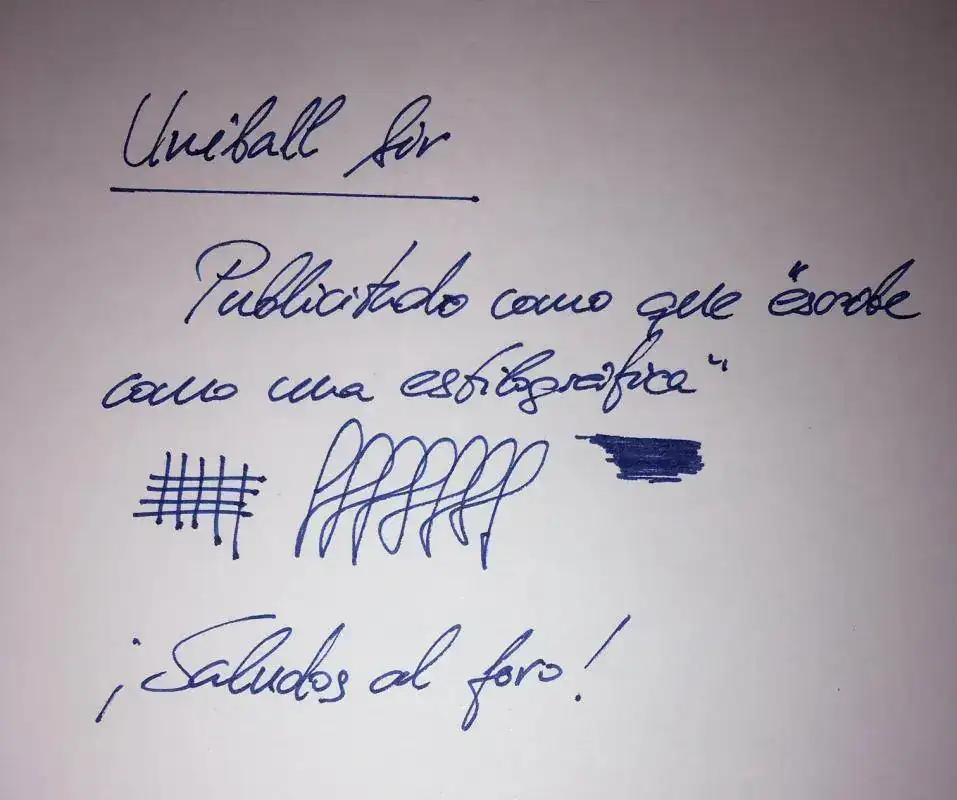 Uniball Air
Publicitado como que "escribe
como una estilográfica"
¡Saludos al foro!